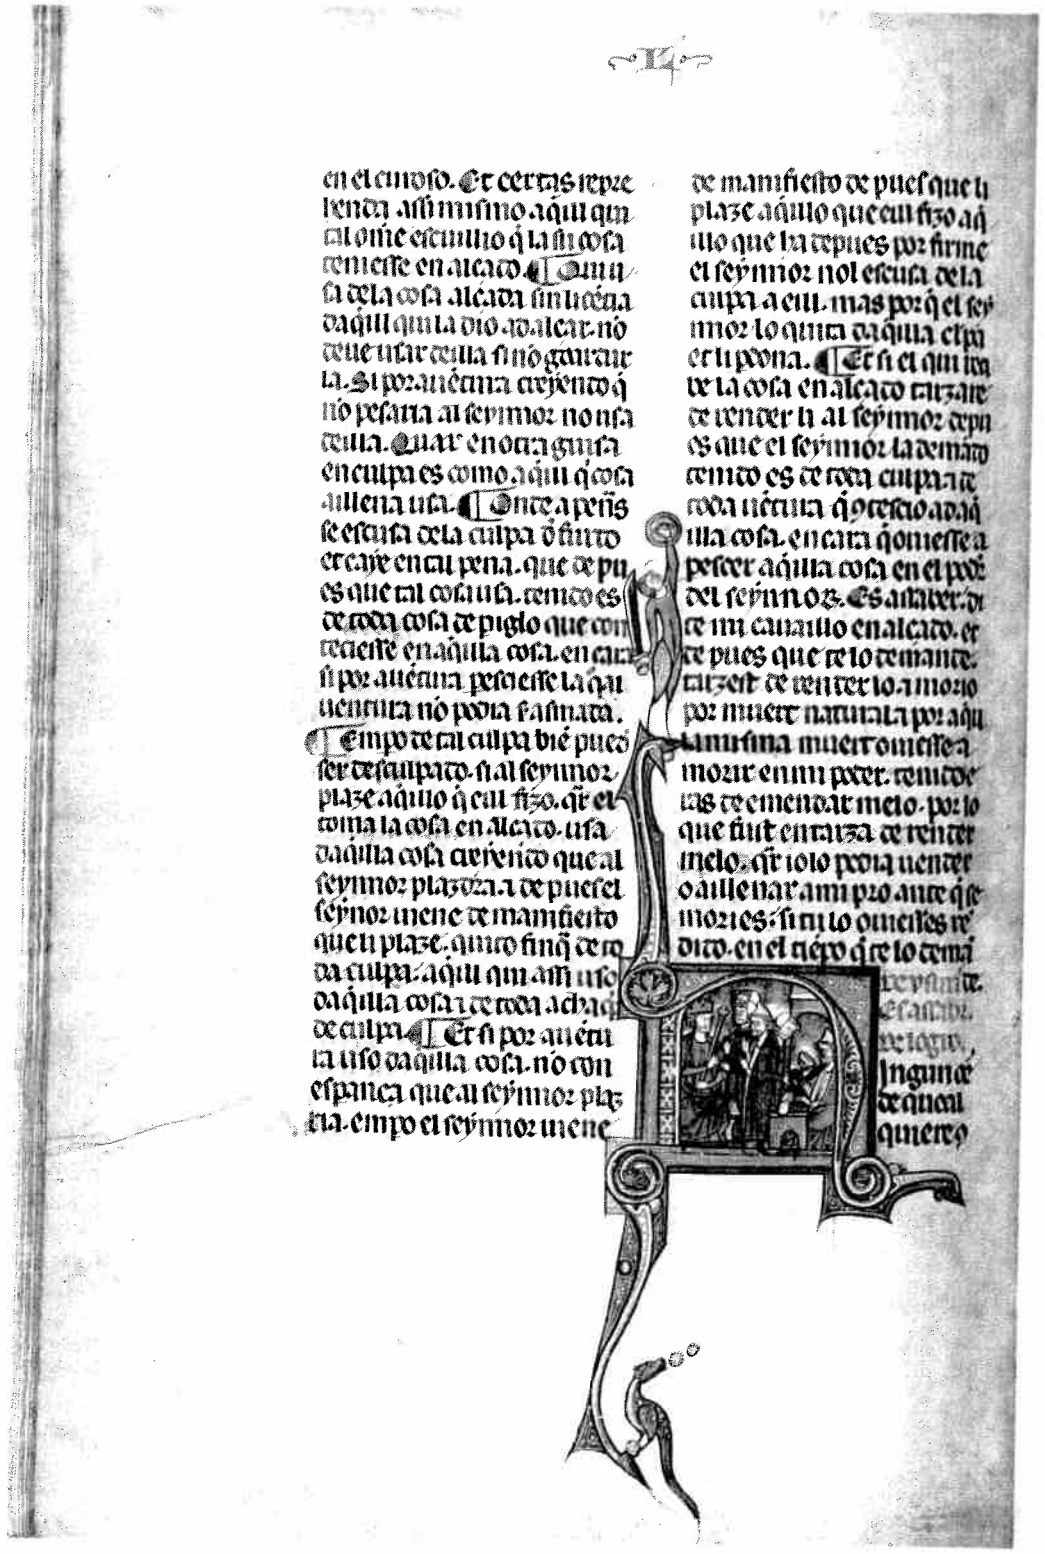 en el enioso. Et certas repre
henda assi mismo aquil qui
tal omē escuillio q̄ la su cosa
teniesse en alçado. ¶ Qui u
sa de la cosa alçada sin licēcia
daq̄ill qui la dio ad alçar. nō
deue usar deilla si nō goardar
la. Si por auētura creyendo q̄
nō pesaria al seynnor no usa
deilla. Quar en otra guisa
en culpa es como aq̄ill q̄ cosa
aillena usa. ¶ Onde a penas
se escusa de la culpa de furto
et caye en tal pena. que de pu
es que tal cosa usa. tenido es
de toda cosa de piglo que con
teciesse en aq̄illa cosa. encara
si por auētura pesciesse la q̄al
uentura nō podia ser asmada.
¶ Empo de tal culpa biē puede
ser desculpado. si al seynnor
plaze aq̄illo q̄ eill fizo. q̄r el
toma la cosa en alçado. usa
daq̄illa cosa creyendo que al
seynnor plazdra. a depues el
seynor uiene de manifiesto
que li plaze. quito finq̄ de to
da culpa. aq̄ill qui assi uso
daq̄illa cosa ⁊ de toda achaq̄
de culpa. ¶ Et si por auētu
ra uso daq̄illa cosa. nō con
esperança que al seynnor plaz
ria. empo el seynnor uiene
de manifiesto de pues que li
plaze aq̄illo que eill fizo aq̄
illo que ha depues por firme
el seynnor nol escusa de la
culpa a eill. mas por q̄ el sey
nnor lo quita daq̄illa el pa
et li pdona. ¶ Et si el qui ira
de la cosa en alçado tarzare
de render li al seynnor depu
es que el seynnor la demādo
tenido es de toda culpa ⁊ de
toda uētura q̄ contescio ad aq̄
illa cosa. encara q̄ ouiesse a
pescer aq̄illa cosa en el poder
del seynnor. Es assaber. di
te mi cauaillo en alçado. et
de pues que te lo demande.
tarzest de render lo. ⁊ morio
por muert natural. ⁊ por aq̄ill
la misma muert ouiesse a
morir en mi poder. tenido e
ras de emendar melo. por lo
que fuist en tarza de render
melo. q̄r io lo podia uender
o aillenar a mi pro ante q̄ se
mories: si tu lo ouiesses re
dido. en el tiēpo q̄ te lo demā
Es assabr.
de logro.
Ingun
de qual
quiere